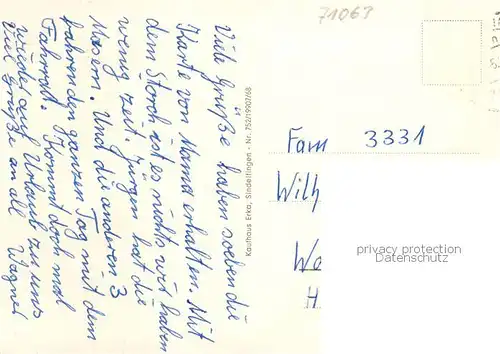 Viele Grüße haben soeben die
Karte von Mama erhalten. Mit
dem Storch ist es nichts wir haben
wenig Zeit. Jürgen hat die
Masern. Und die anderen 3
fahren den ganzen Tag mit dem
Fahrrad. Kommt doch mal
wieder auf Urlaub zu uns
Viel Grüße an all Wagner
Kaufhaus Erka, Sindelfingen - Nr. 752/19902/68
71063
Fam 3331
Wilh
We
H
privacy protection
Datenschutz